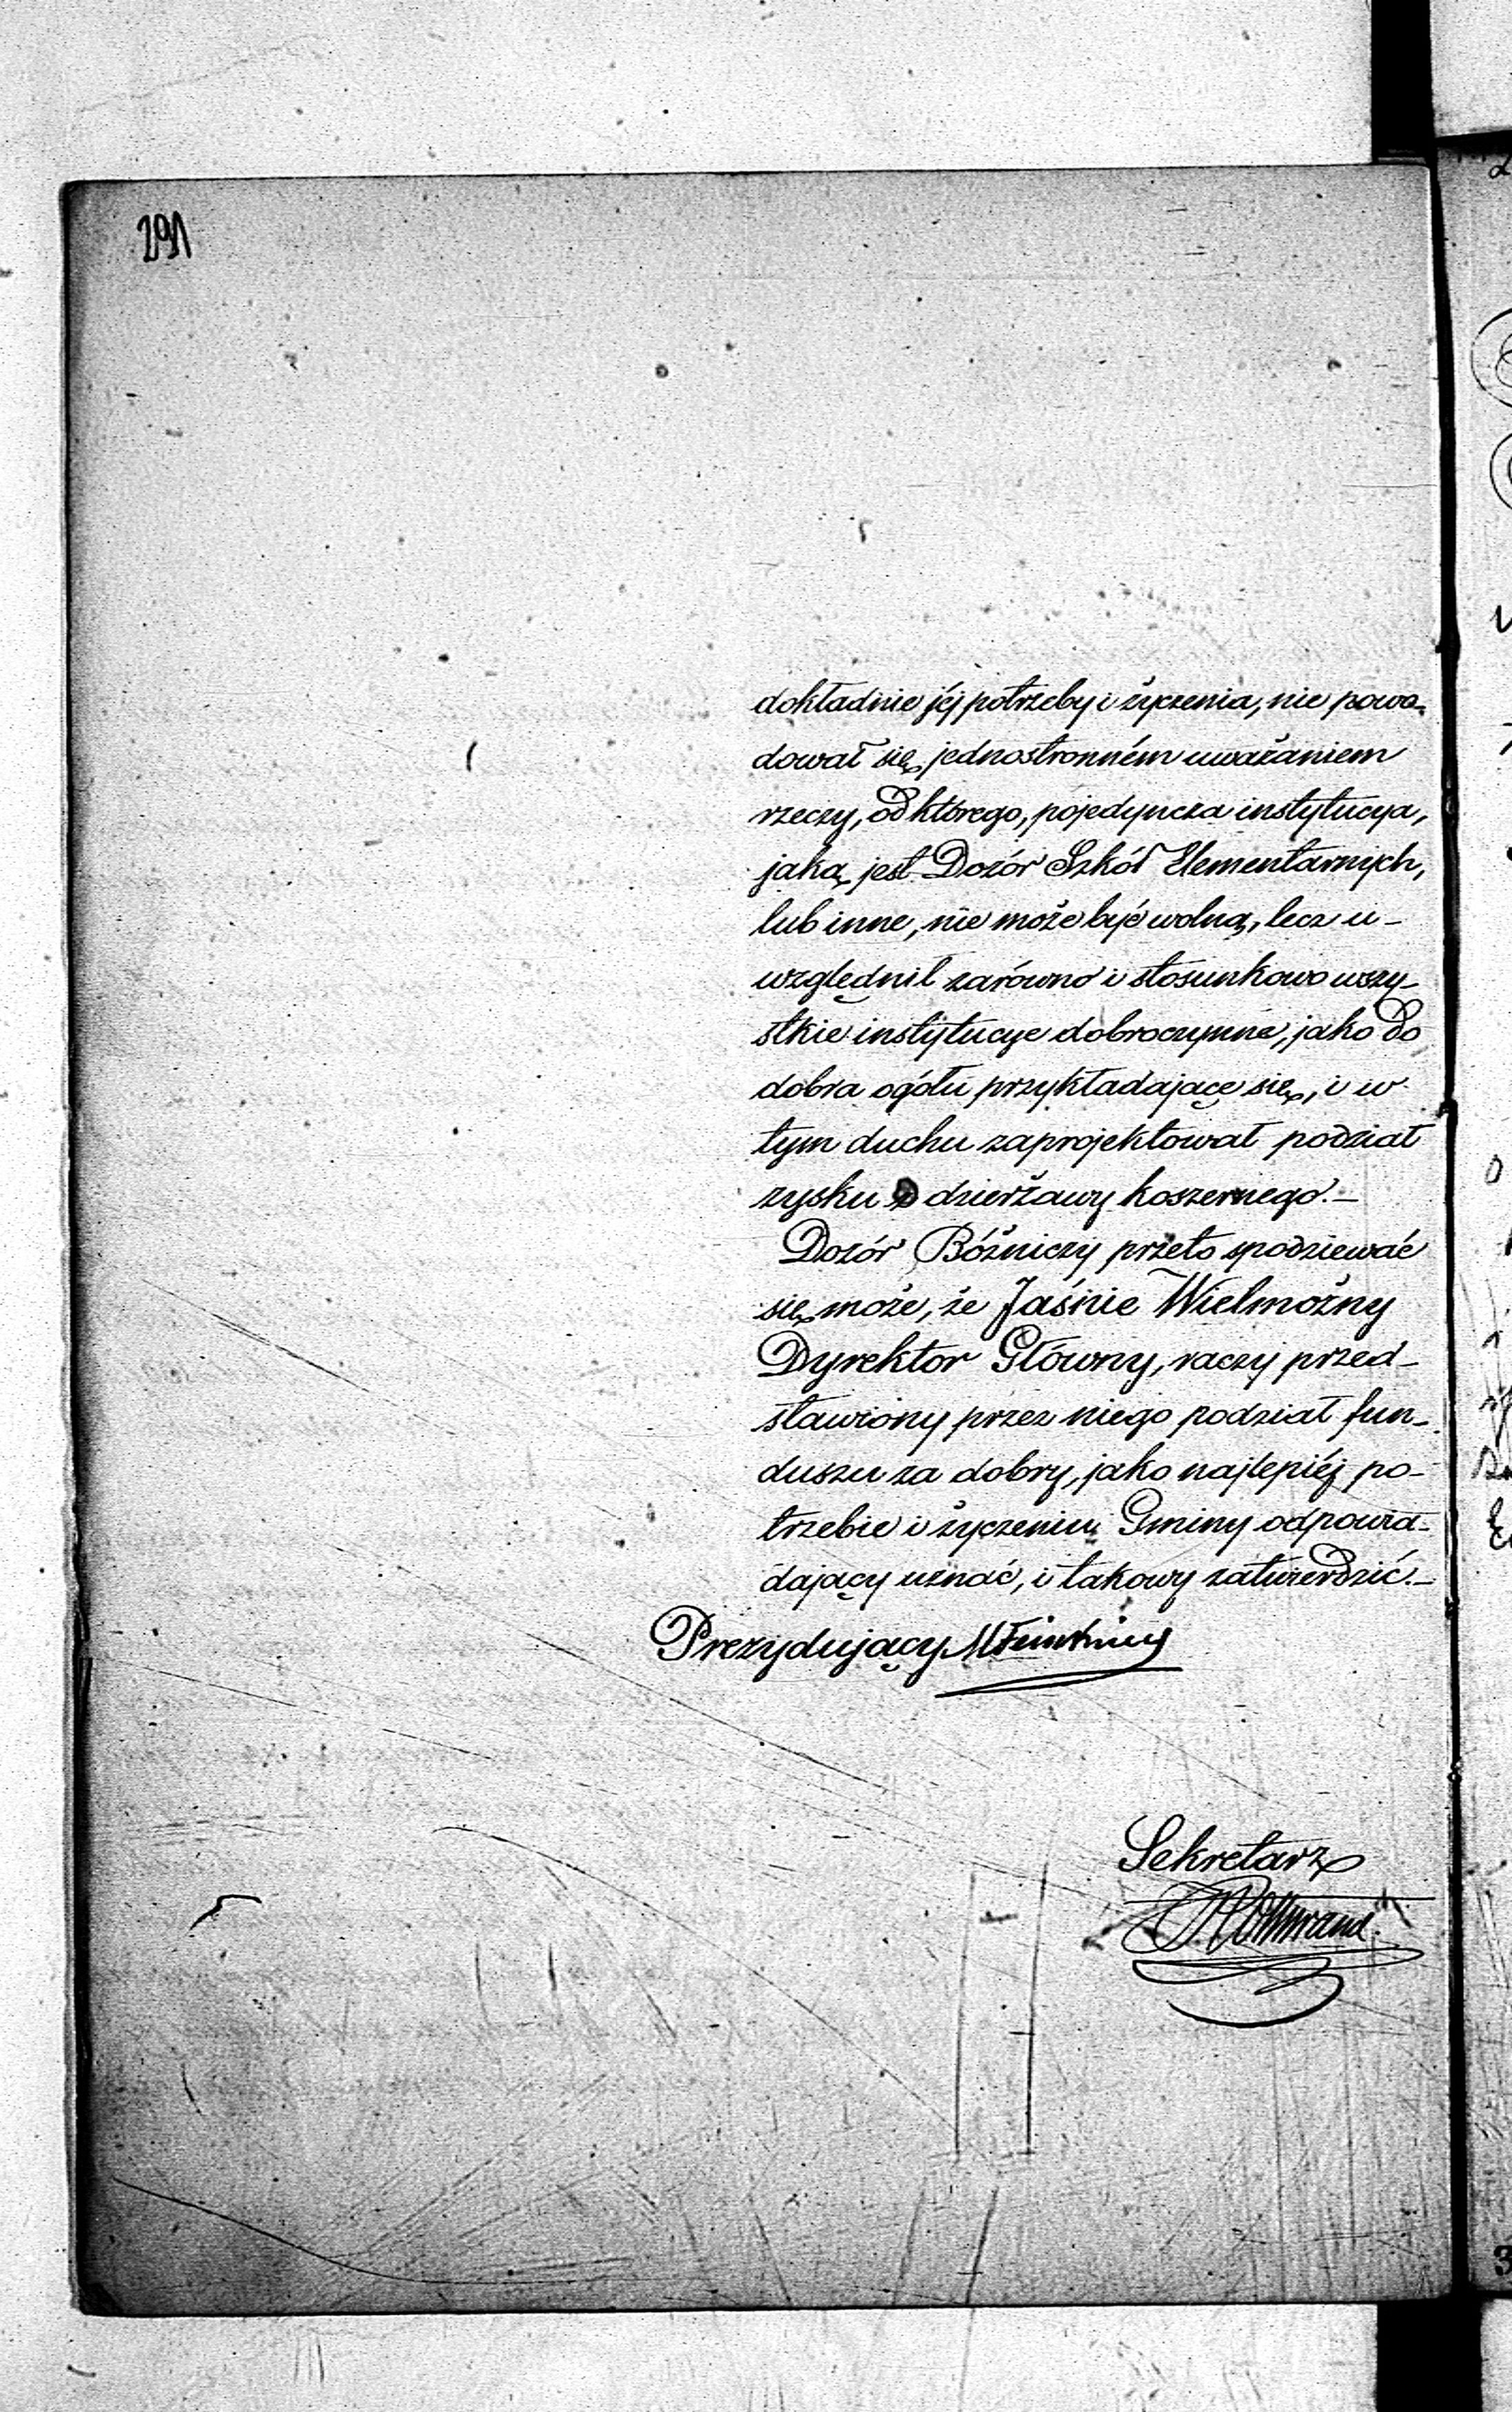 291
dokładnie jéj potrzeby i życzenia, nie powo-
dował się jednostronném uważaniem
rzeczy, od którego, pojedyncza instytucya,
jaką jest Dozór Szkół Elementarnych,
lub inne, nie może być wolną, lecz u-
względnił zarówno i stosunkowo wszy-
stkie instytucye dobroczynne, jako do
dobra ogółu przykładające się, i w
tym duchu zaprojektował podział
zysku dzierżawy koszernego.-
Dozór Bóźniczy przeto spodziewać
się może, że Jaśnie Wielmożny
Dyrektor Główny, raczy przed-
stawiony przez niego podział fun-
duszu za dobry, jako najlepiéj po-
trzebie i życzeniu Gminy odpowia-
dający uznać, i takowy zatwierdzić.-
Prezydujący
Sekretarz